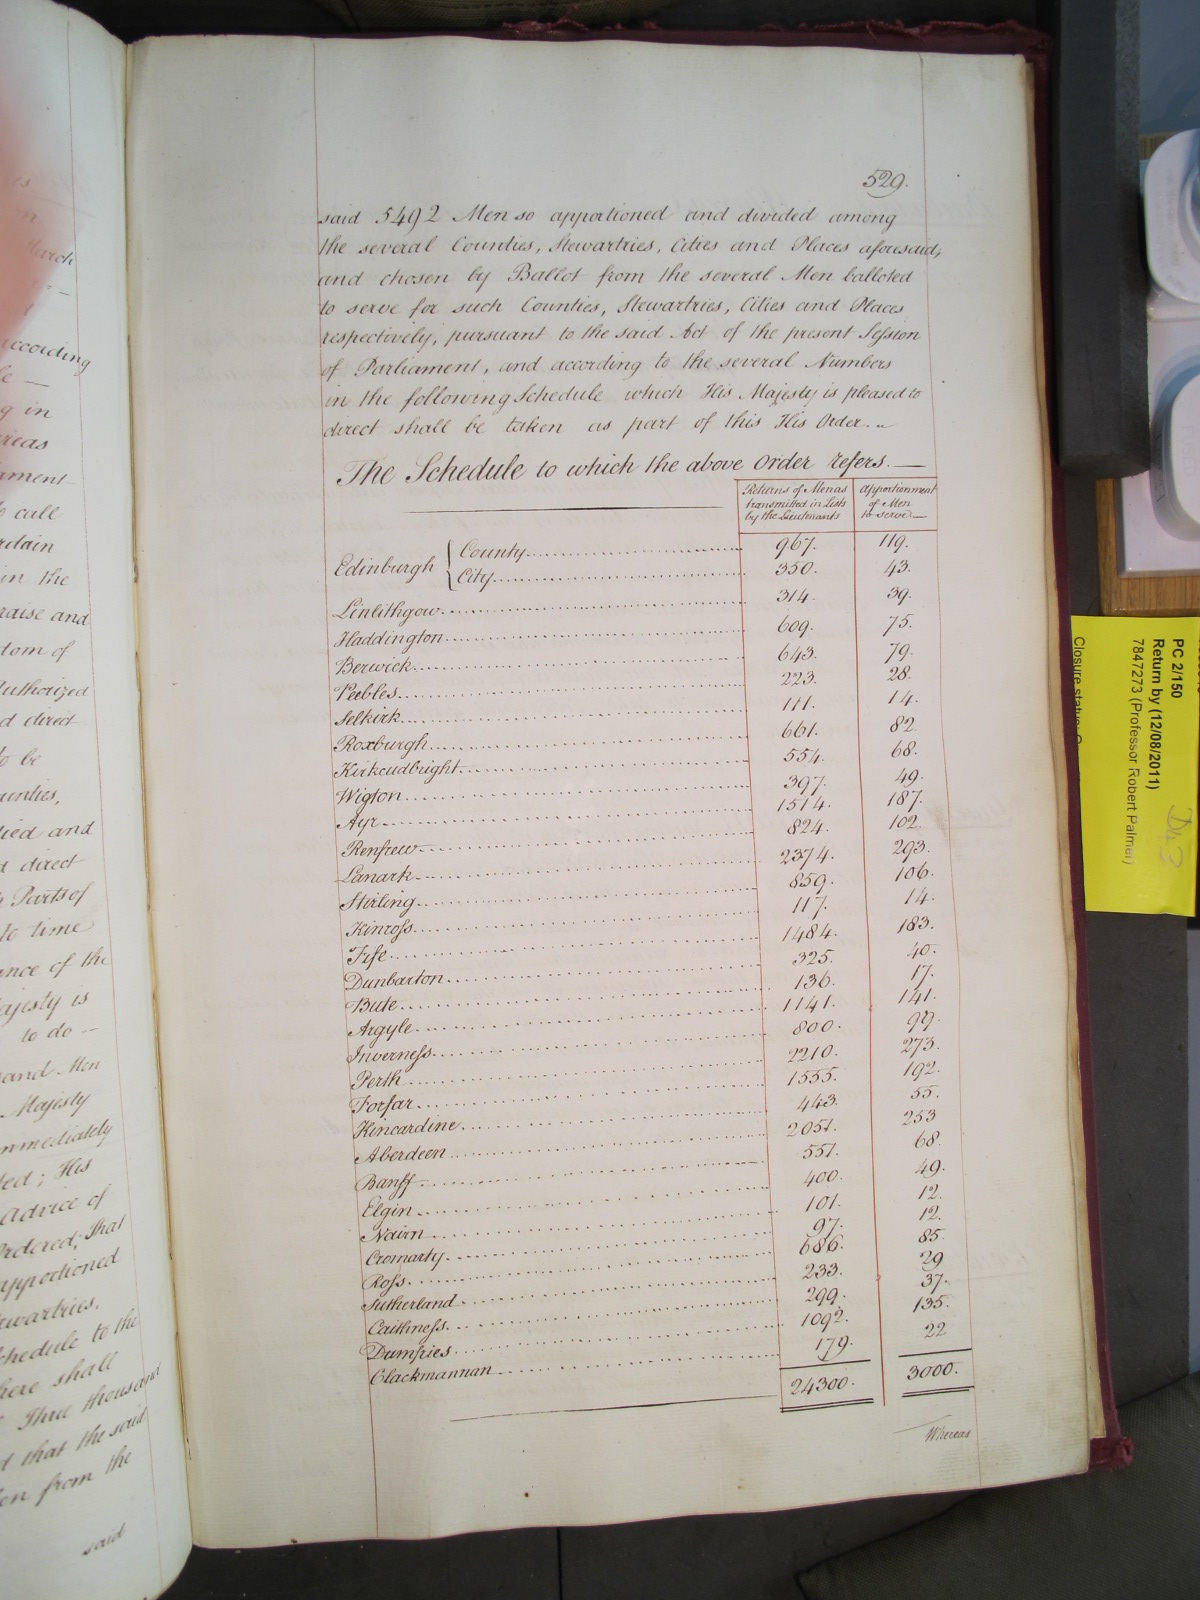 529.
said 5492 Men so apportioned and divided among
the several Counties, Stewartries, Cities and Places aforesaid,
and chosen by Ballot from the several Men balloted
to serve for such Counties, Stewartries, Cities and Places
respectively, pursuant to the said Act of the present Session
of Parliament, and according to the several Numbers
in the following Schedule which His Majesty is pleased to
direct shall be taken as part of this His Order..
The Schedule to which the above Order refers.—
Returns of Men as transmitted in Lists by the Lieutenants
Apportionment of Men to serve
Edinburgh { County 967. 119.
City 350. 43.
Linlithgow 314. 39.
Haddington 609. 75.
Berwick 643. 79.
Peebles 223. 28.
Selkirk 111. 14.
Roxburgh 661. 82.
Kirkcudbright 554. 68.
Wigton 397. 49.
Ayr 1514. 187.
Renfrew 824. 102.
Lanark 2374. 293.
Stirling 859. 106.
Kinross 117. 14.
Fife 1484. 183.
Dunbarton 325. 40.
Bute 136. 17.
Argyle 1141. 141.
Inverness 800. 99.
Perth 2210. 273.
Forfar 1555. 192.
Kincardine 443. 55.
Aberdeen 2051. 253
Banff 551. 68.
Elgin 400. 49.
Nairn 101. 12.
Cromarty 97. 12.
Ross 686. 85.
Sutherland 233. 29
Caithness 299. 37.
Dumfries 1092. 135.
Clackmannan 179. 22
24300. 3000.
Whereas
March
according
g in
ament
to call
in the
raise and
dom of
Authorized
d direct
to be
ied and
d direct
Parts of
to time
ance of the
ajesty is
to do —
and Men
Majesty
mmediately
ed; His
Advice of
rdered, That
apportioned
ewartries,
chedule to the
here shall
Three thousand
d that the said
en from the
said
PC 2/150
Return by (12/08/2011)
7847273 (Professor Robert Palmer)
D43